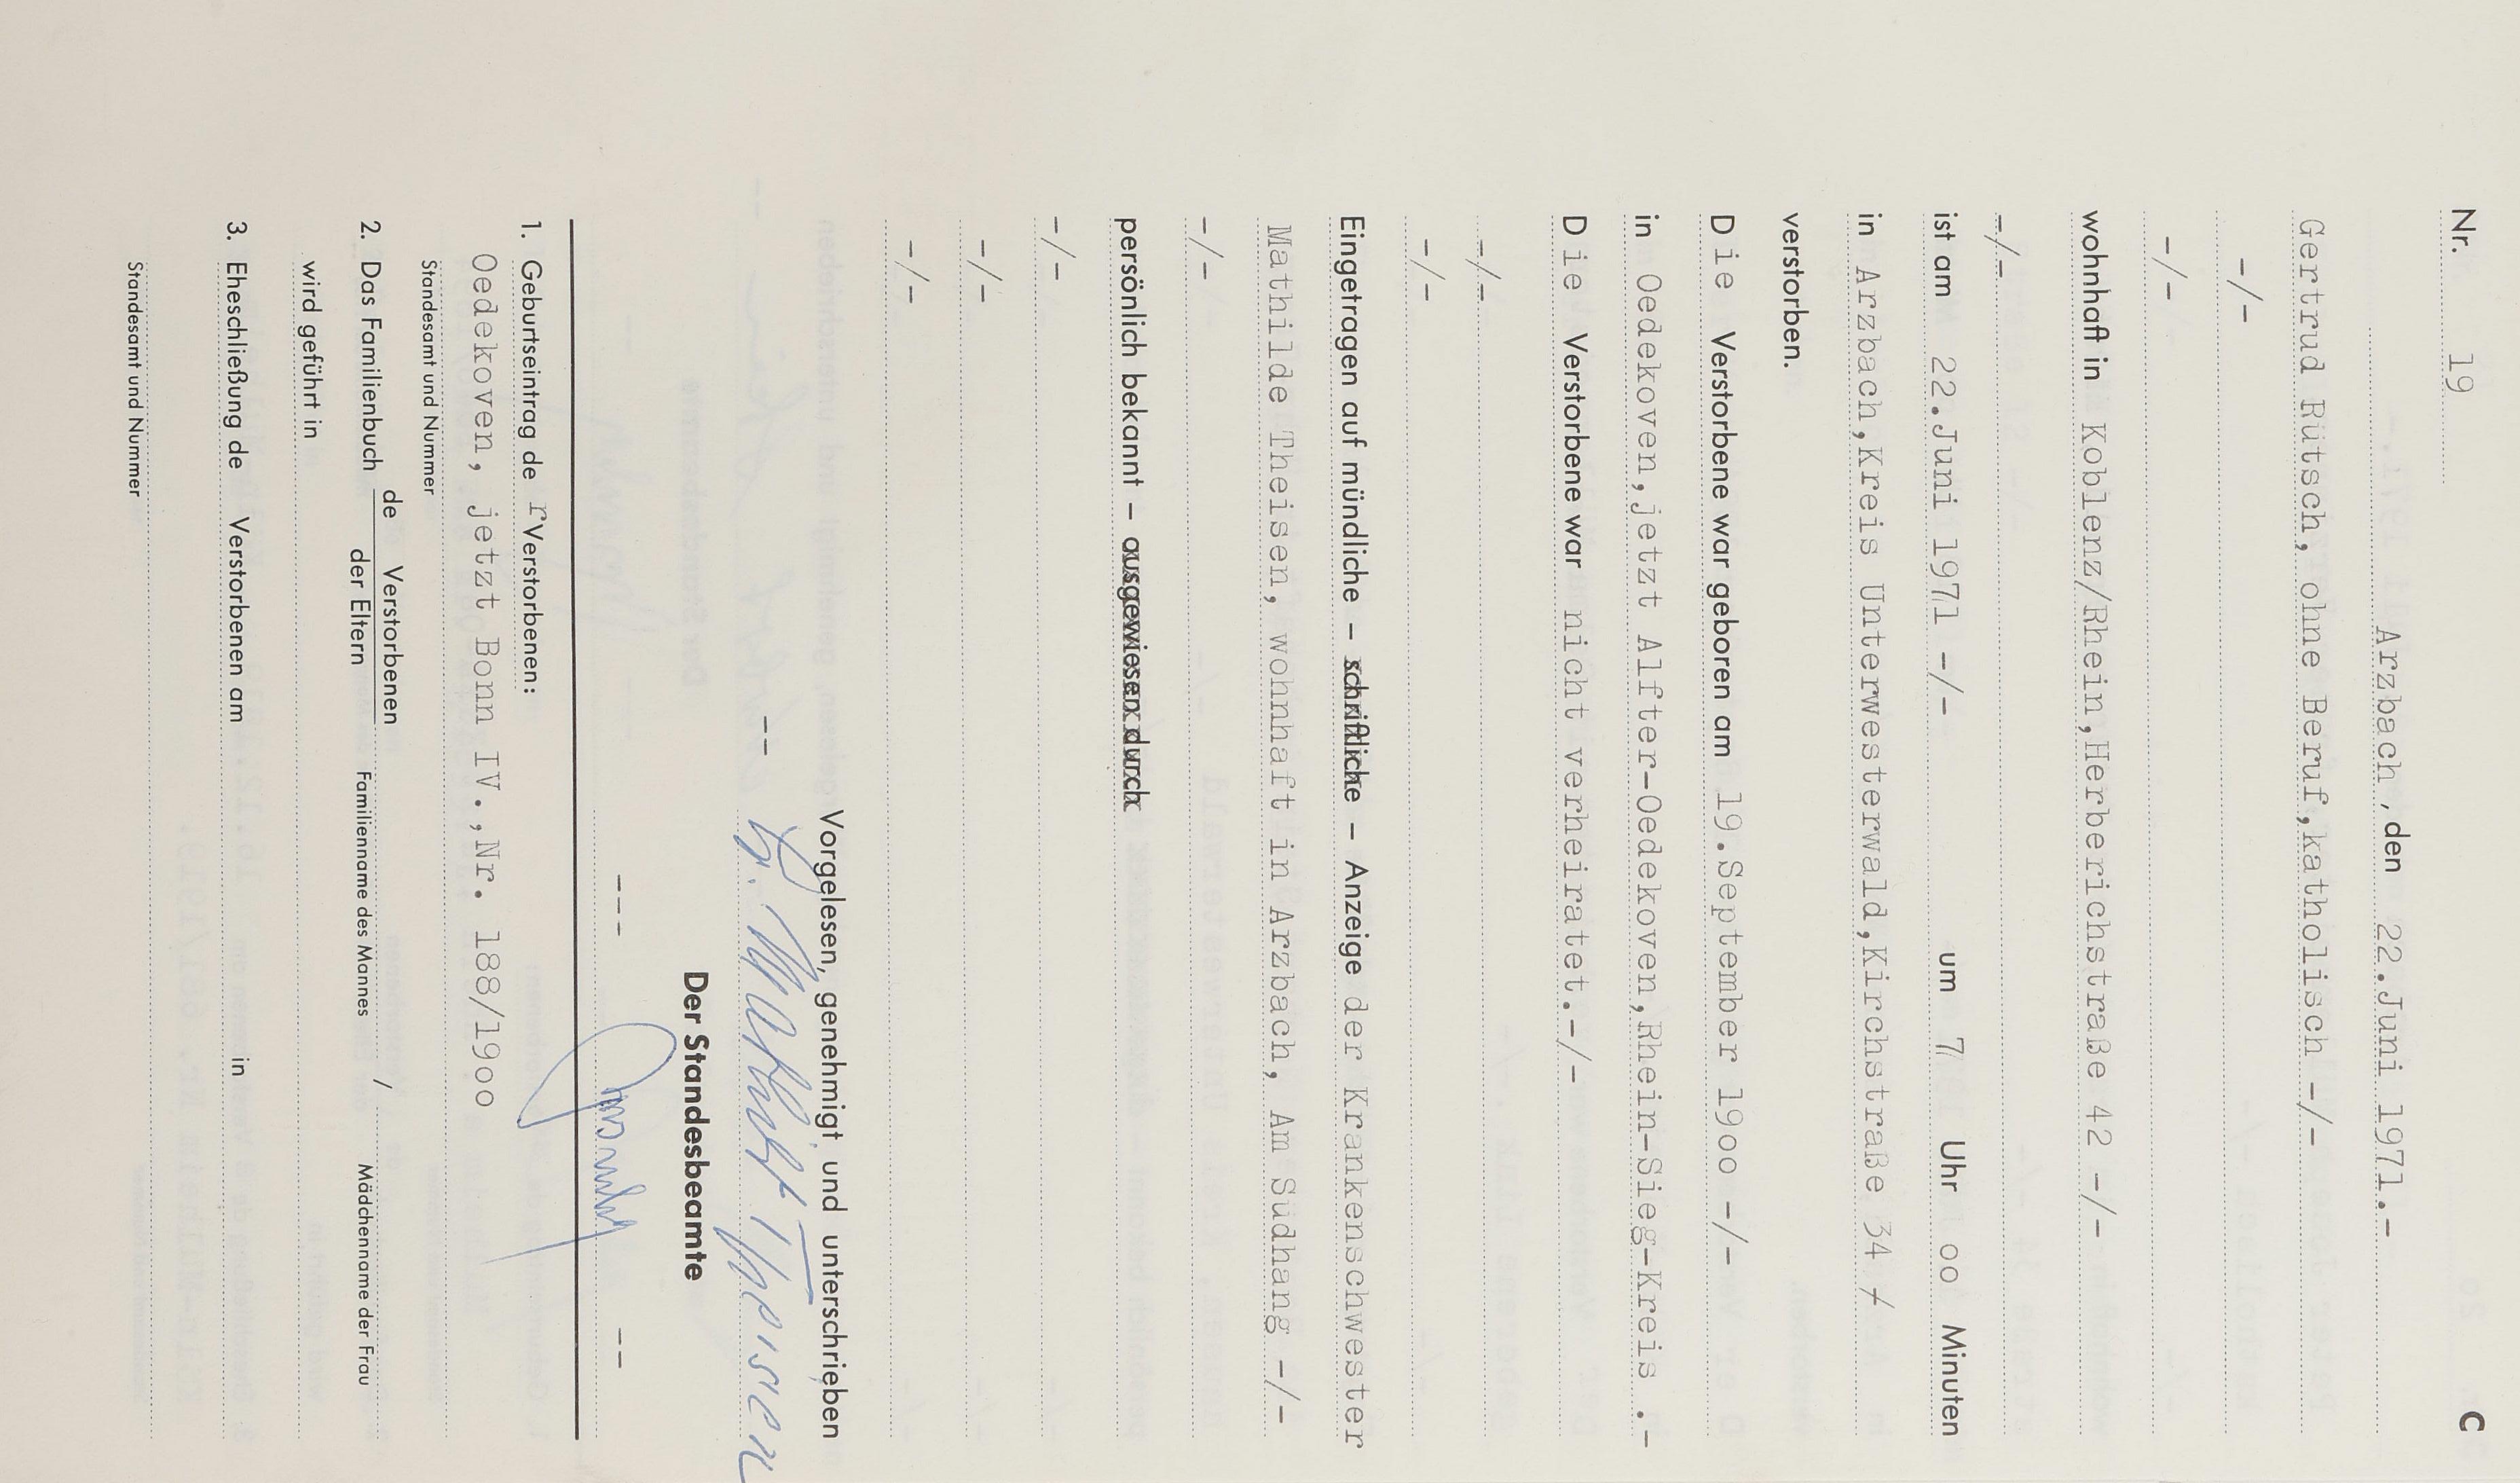 Nr. 19 C
Arzbach, den 22.Juni 1971.-
Gertrud Rütsch, ohne Beruf,katholisch -/-
-/-
-/-
wohnhaft in Koblenz/Rhein,Herberichstraße 42 -/-
-/-
ist am 22.Juni 1971 -/- um 7 Uhr oo Minuten
in Arzbach,Kreis Unterwesterwald,Kirchstraße 34 -/-
verstorben.
Die Verstorbene war geboren am 19.September 19oo -/-
in Oedekoven,jetzt Alfter-Oedekoven,Rhein-Sieg-Kreis .-
Die Verstorbene war nicht verheiratet.-/-
-/-
-/-
Eingetragen auf mündliche – schriftliche – Anzeige der Krankenschwester
Mathilde Theisen, wohnhaft in Arzbach, Am Südhang -/-
-/-
persönlich bekannt – ausgewiesen durch
-/-
-/-
-/-
Vorgelesen, genehmigt und unterschrieben
-- Mathilde Theisen
Der Standesbeamte
--- --
1. Geburtseintrag der Verstorbenen:
Oedekoven, jetzt Bonn IV.,Nr. 188/19oo
Standesamt und Nummer
2. Das Familienbuch de Verstorbenen / der Eltern /
Familienname des Mannes Mädchenname der Frau
wird geführt in
3. Eheschließung de Verstorbenen am in
Standesamt und Nummer